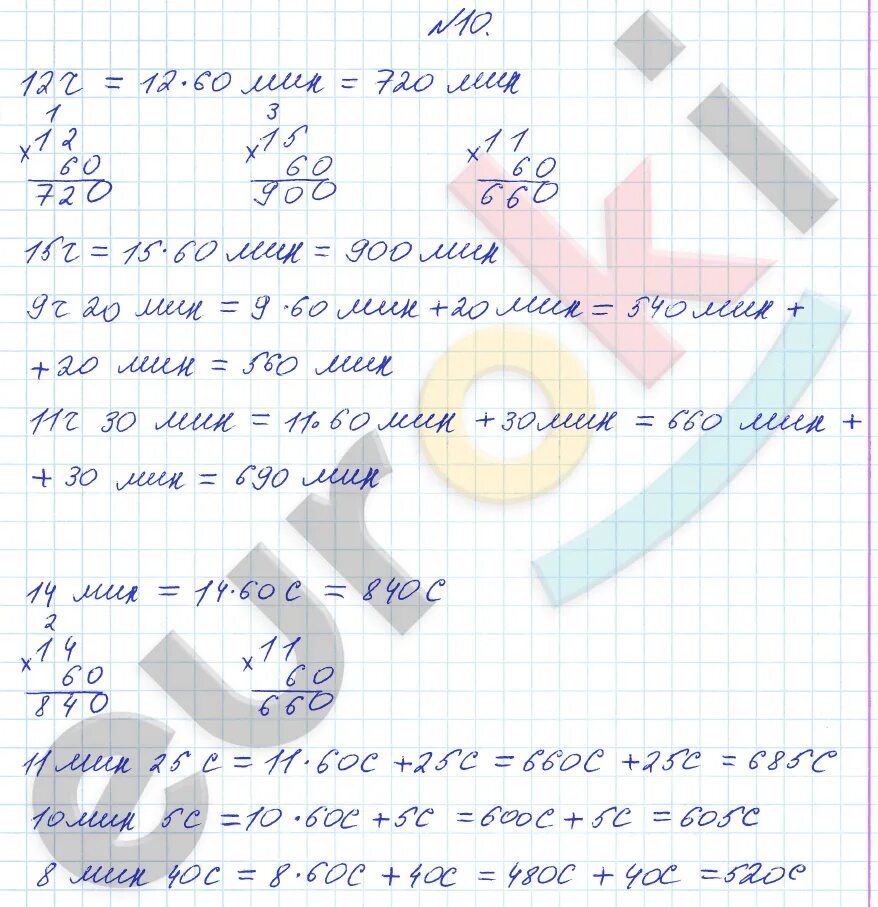 №10.
12ч = 12·60 мин = 720 мин
1 3
×12 ×15 ×11
60 60 60
720 900 660
15ч = 15·60 мин = 900 мин
9ч 20 мин = 9·60 мин + 20 мин = 540 мин +
+ 20 мин = 560 мин
11ч 30 мин = 11·60 мин + 30 мин = 660 мин +
+ 30 мин = 690 мин
14 мин = 14·60 с = 840 с
2
×14 ×11
60 60
840 660
11 мин 25 с = 11·60с + 25с = 660с + 25с = 685с
10 мин 5с = 10·60с + 5с = 600с + 5с = 605с
8 мин 40с = 8·60с + 40с = 480с + 40с = 520с
euroki